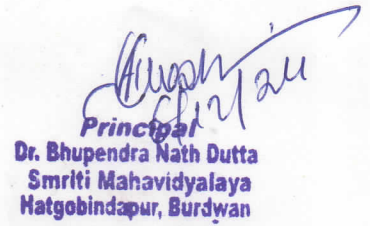 6/12/24
Principal
Dr. Bhupendra Nath Dutta
Smriti Mahavidyalaya
Hatgobindapur, Burdwan